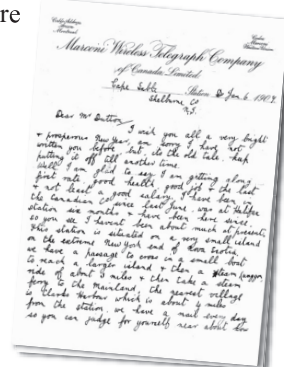 re
Marconi Wireless Telegraph Company
of Canada Limited
Cape Sable Station Jan 6 1909.
Shelburne Co
N.S.
Dear Mr Dutton,
I wish you all a very bright
& prosperous New Year, am sorry I have not
written you before but its the old tale, kept
putting it off till another time.
Well! I am glad to say I am getting along
first rate, good health, good job & the last
& not least a good salary. I have been in
the Canadian since last June, was at Halifax
station six months & have been here since
so you see I havent been about much at present.
This station is situated on a very small island
on the extreme end of Nova Scotia,
we have a passage to cross in a small boat
to reach a larger island & then a
ride of about 3 miles & then take a steam
ferry to the Mainland, the nearest village
is Clarks Harbour which is about 4 miles
from the station, we have a mail every day
so you can judge for yourself near about how